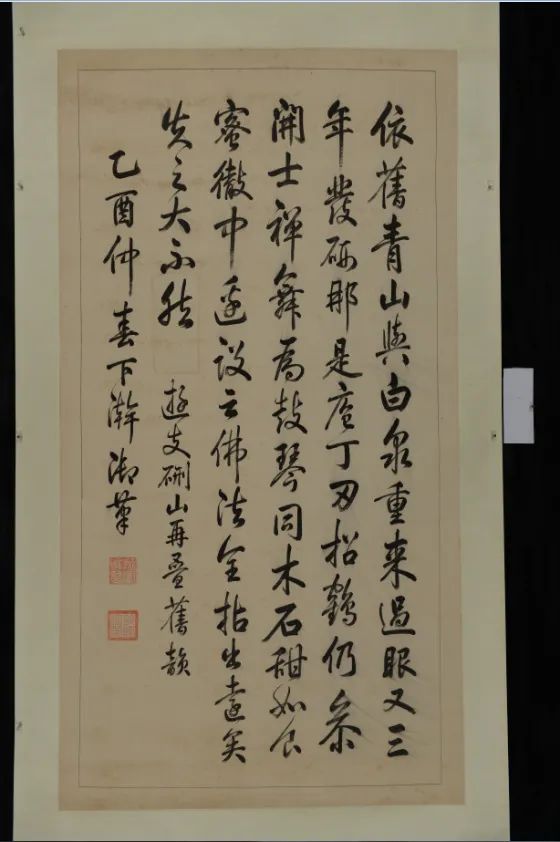 依舊青山與白泉重來過眼又三
年發硎那是庖丁刃招鶴仍參
開士禪舞爲鼓琴同木石甜如食
蜜徹中邊設云佛法全拈出遠矣
失之大不然 遊支硎山再疊舊韻
乙酉仲春下澣御筆